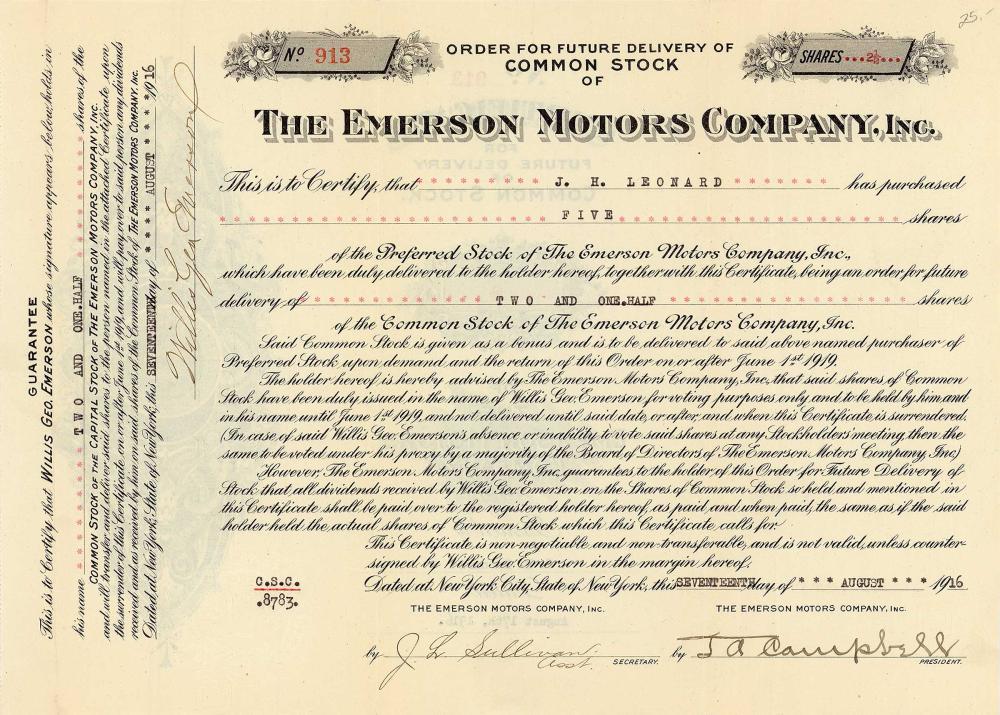 25.-
No. 913
ORDER FOR FUTURE DELIVERY OF
COMMON STOCK
OF
SHARES ...2½...
THE EMERSON MOTORS COMPANY, INC.
This is to Certify, that * * * * * * * * * J. H. LEONARD * * * * * * * has purchased
FIVE shares
of the Preferred Stock of The Emerson Motors Company, Inc.,
which have been duly delivered to the holder hereof, together with this Certificate, being an order for future
delivery of TWO AND ONE.HALF shares
of the Common Stock of The Emerson Motors Company, Inc.
Said Common Stock is given as a bonus and is to be delivered to said above named purchaser of
Preferred Stock upon demand and the return of this Order on or after June 1st 1919.
The holder hereof is hereby advised by The Emerson Motors Company, Inc, that said shares of Common
Stock have been duly issued in the name of Willis Geo. Emerson for voting purposes only and to be held by him and
in his name until June 1st 1919, and not delivered until said date, or after, and when this Certificate is surrendered.
(In case of said Willis Geo. Emerson's absence or inability to vote said shares at any Stockholders' meeting then the
same to be voted under his proxy by a majority of the Board of Directors of The Emerson Motors Company Inc.)
However, The Emerson Motors Company Inc. guarantees to the holder of this Order for Future Delivery of
Stock that all dividends received by Willis Geo. Emerson on the Shares of Common Stock so held and mentioned in
this Certificate shall be paid over to the registered holder hereof, as paid, and when paid, the same as if the said
holder held the actual shares of Common Stock which this Certificate calls for.
This Certificate is non-negotiable and non-transferable, and is not valid, unless counter-
signed by Willis Geo. Emerson in the margin hereof.
Dated at New York City, State of New York, this SEVENTEENTH day of * * * AUGUST * * * 1916
C.S.C.
.8783.
THE EMERSON MOTORS COMPANY, INC.
THE EMERSON MOTORS COMPANY, INC.
by J. L. Sullivan Asst. SECRETARY.
by J A Campbell PRESIDENT.
GUARANTEE
This is to Certify that WILLIS GEO. EMERSON whose signature appears below, holds in
his name TWO AND ONE.HALF shares of the
COMMON STOCK OF THE CAPITAL STOCK OF THE EMERSON MOTORS COMPANY, INC.
and will transfer and deliver said shares to the person named in the attached Certificate upon
the surrender of this Certificate on or after June 1st 1919, and will pay over to said person any dividends
received and as received by him on said shares of the Common Stock of THE EMERSON MOTORS COMPANY, INC.
Dated at New York, State of New York, this SEVENTEENTH day of * * * * * AUGUST * * * * * 1916
Willis Geo Emerson